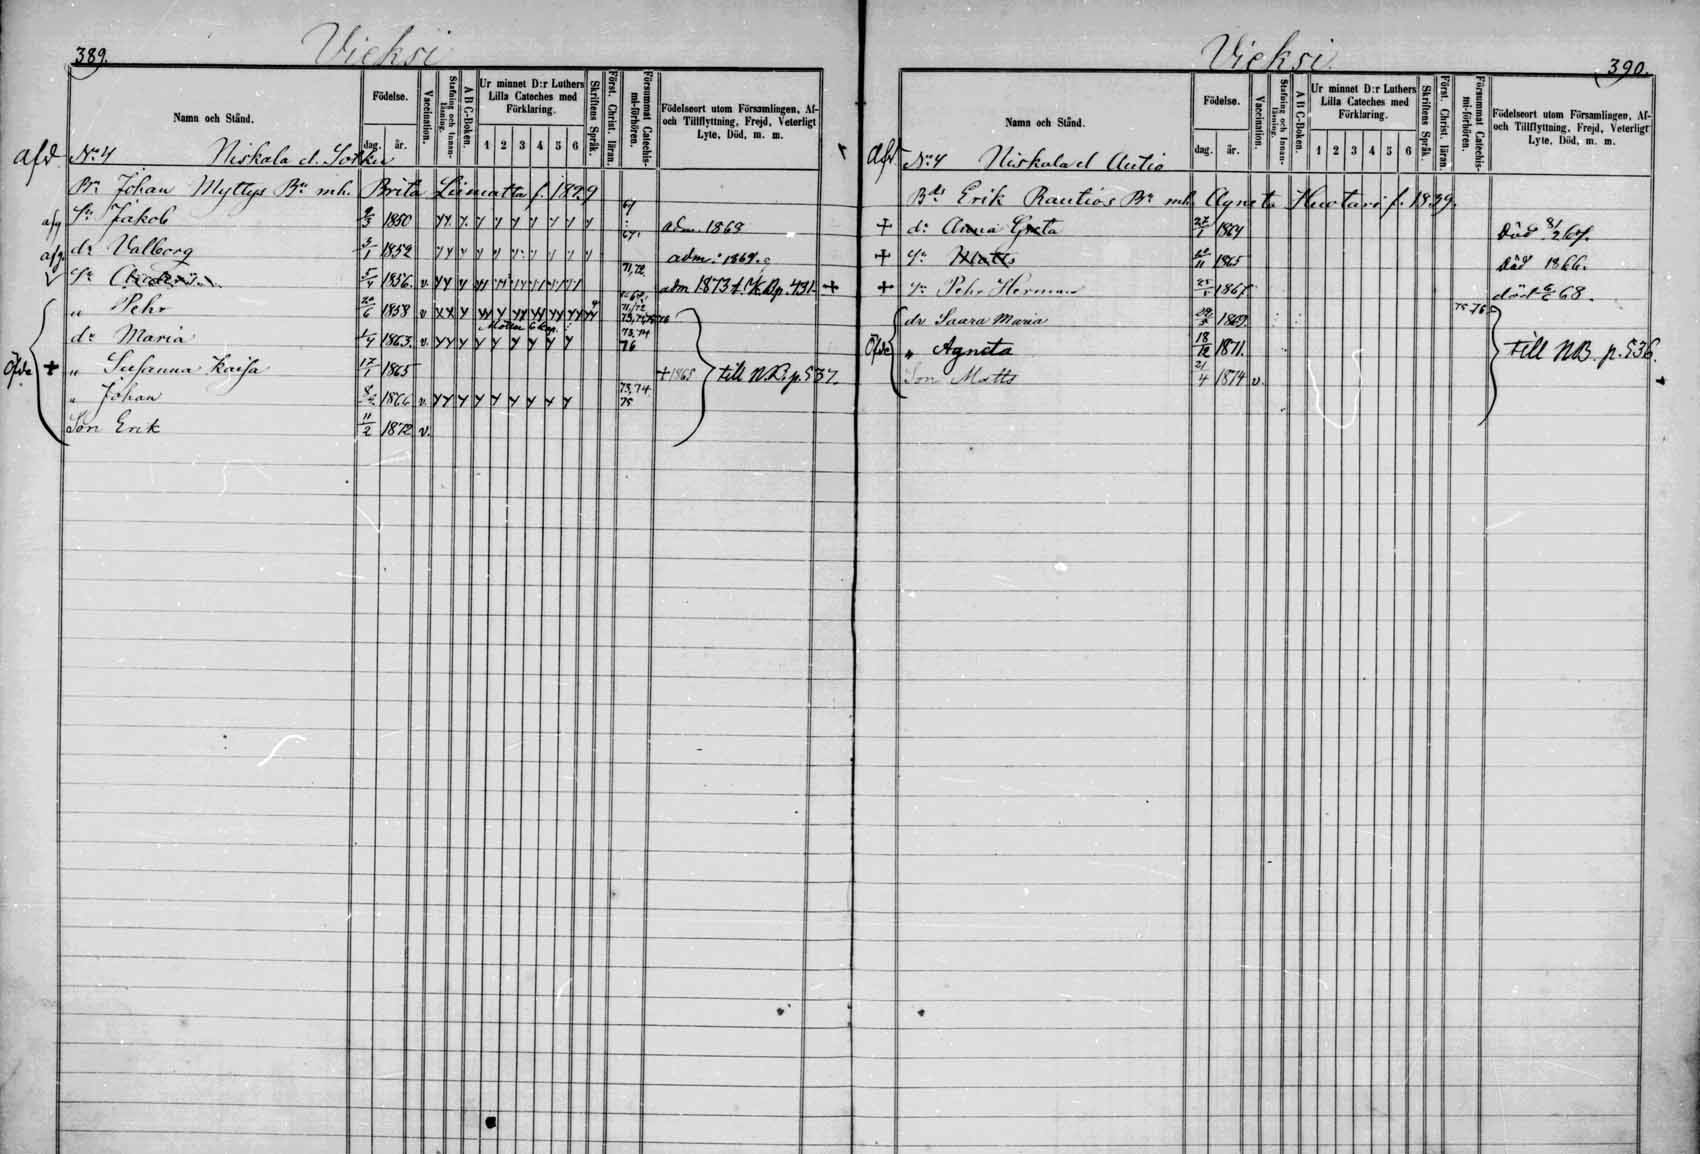 389.
Vieksi
Namn och Stånd.
Födelse.
dag.
år.
Vaccination.
Stafning och Innan-läsning.
A B C-Boken.
Ur minnet D:r Luthers Lilla Cateches med Förklaring.
1 2 3 4 5 6
Skriftens Språk.
Först. Christ. läran.
Försummat Catechis-mi-förhören.
Födelseort utom Församlingen, Af- och Tillflyttning, Frejd, Veterligt Lyte, Död, m. m.
afd. No 4 Niskala d.
Johan Myttys Bn mh. Brita f. 1829
afg Sn Jakob 9/3 1850 y y y. y y y y y y y 67 adm. 1868
afg. dr Valborg 3/1 1852 y y y y y y y y y y 67. adm. 1869.
Sn 5/4 1856. v. y y y 71, 72. adm 1873 p. 431.
" Pehr 20/6 1858 v 71/72 73,
dr Maria 1863. v. y y y y y y y y y 73, 74 76
Öfde + " Susanna Kaisa 17/1 1865 + 1865 till N.B. p. 537.
" Johan 1866 v. y y y y y y y y y 73, 74 75
Son Erik 11/2 1872 v.
Vieksi
390.
Namn och Stånd.
Födelse.
dag.
år.
Vaccination.
Stafning och Innan-läsning.
A B C-Boken.
Ur minnet D:r Luthers Lilla Cateches med Förklaring.
1 2 3 4 5 6
Skriftens Språk.
Först. Christ. läran.
Försummat Catechis-mi-förhören.
Födelseort utom Församlingen, Af- och Tillflyttning, Frejd, Veterligt Lyte, Död, m. m.
afd No 4 Niskala d Autio
Erik Rautios Bn mh. Agneta Huotari f. 1839.
+ dr Anna Greta 27/1 1864 Död 8/2 67.
+ Sn Matts 1865 Död 1866.
+ Sn Pehr Herman 1867 död 68.
dr Saara Maria 1869. 75 76
Öfde " Agneta 18/12 1871. till N.B. p. 536.
Son Matts 21/4 1874 v.